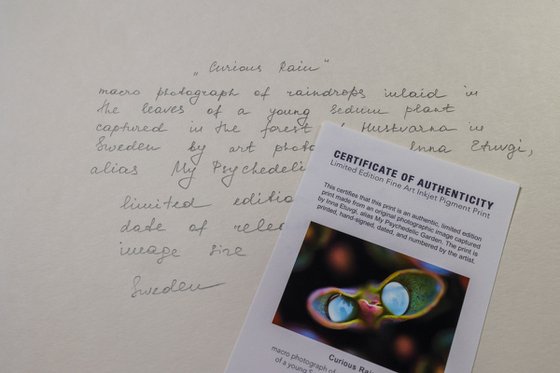 „Curious Rain"
macro photograph of raindrops inlaid in
the leaves of a young sedum plant
captured in the forest Huskvarna in
Sweden by art photo Inna Etuvgi,
alias My Psychedeli
limited editio
date of relea
image size
Sweden
CERTIFICATE OF AUTHENTICITY
Limited Edition Fine Art Inkjet Pigment Print
This certifies that this print is an authentic, limited edition
print made from an original photographic image captured
by Inna Etuvgi, alias My Psychedelic Garden. The print is
printed, hand-signed, dated, and numbered by the artist.
Curious Rai
macro photograph of
of a young S